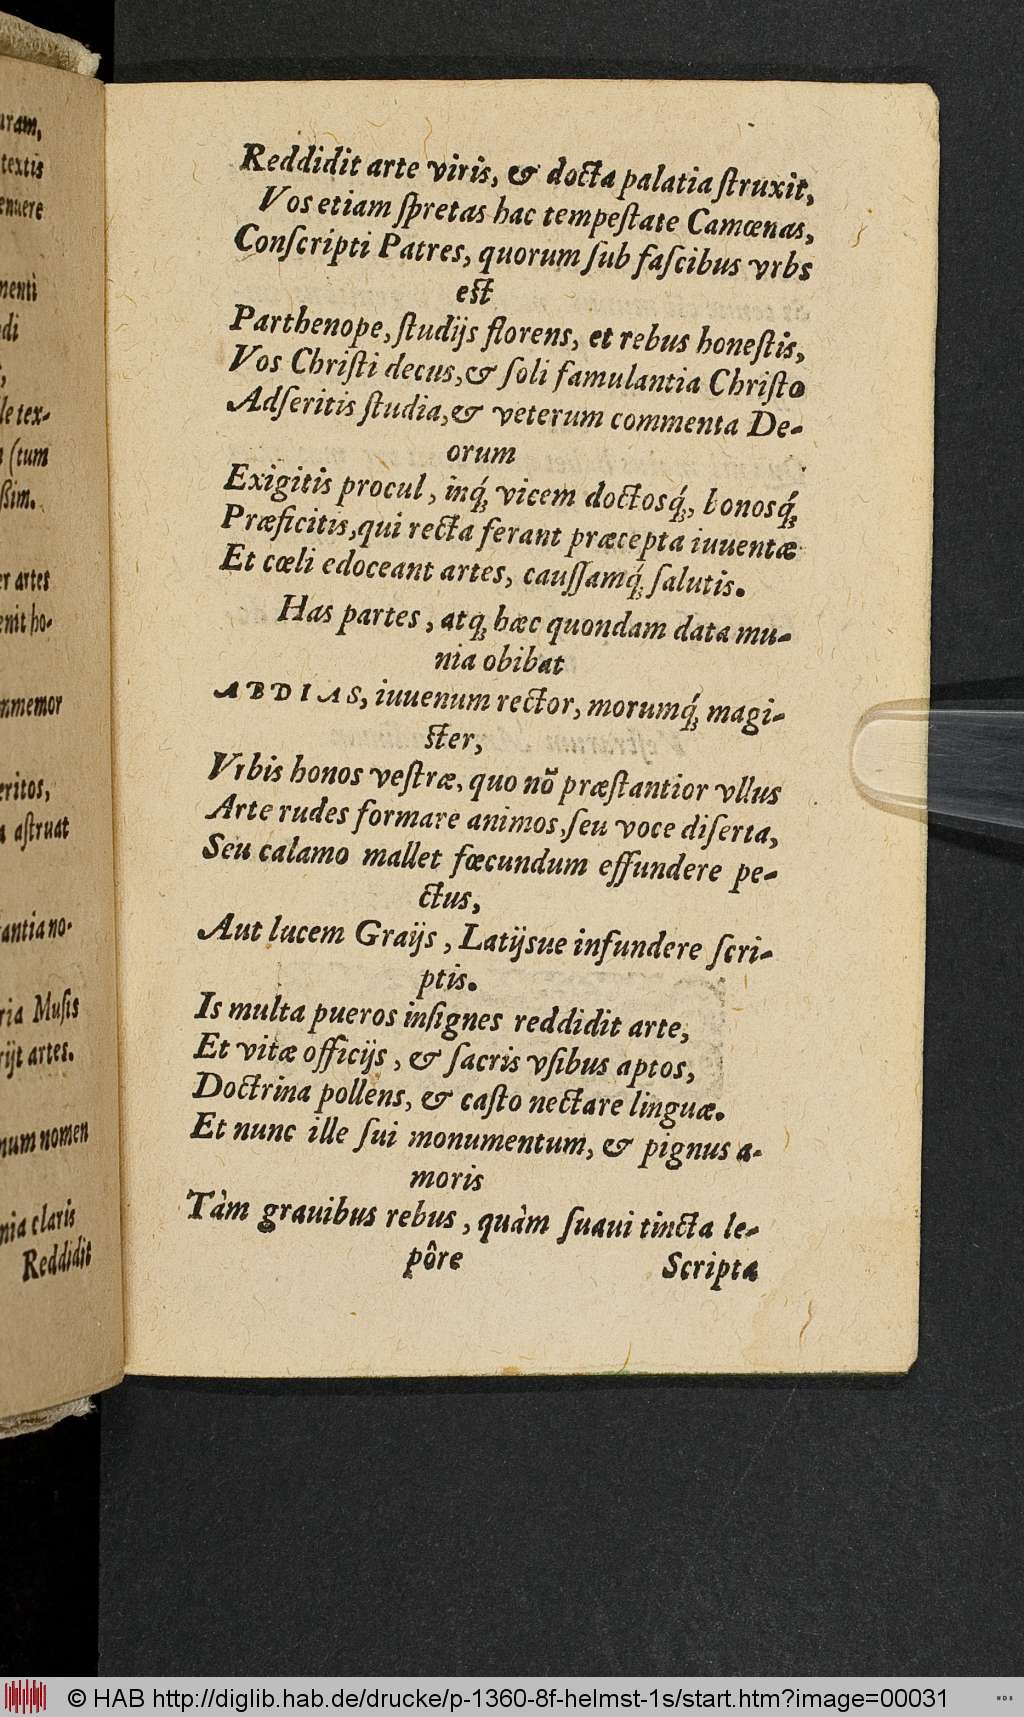 uram,
textis
enuere
menti
di
le tex-
(tum
ßim.
er artes
enit ho-
mmemor
eritos,
a astruat
antia no-
ria Musis
rijt artes.
num nomen
nia claris
Reddidit
Reddidit arte viris, & docta palatia ſtruxit,
Vos etiam ſpretas hac tempeſtate Camœnas,
Conſcripti Patres, quorum ſub faſcibus vrbs
eſt
Parthenope, ſtudijs florens, et rebus honeſtis,
Vos Chriſti decus, & ſoli famulantia Chriſto
Adſeritis ſtudia, & veterum commenta De-
orum
Exigitis procul, inq́ꝫ vicem doctosq́ꝫ, bonosq́ꝫ
Præficitis, qui recta ferant præcepta iuuentæ
Et cœli edoceant artes, cauſſamq́ꝫ ſalutis.
Has partes, atqꝫ hæc quondam data mu-
nia obibat
ABDIAS, iuuenum rector, morumq́ꝫ magi-
ſter,
Vrbis honos veſtræ, quo nõ præſtantior vllus
Arte rudes formare animos, ſeu voce diſerta,
Seu calamo mallet fœcundum effundere pe-
ctus,
Aut lucem Graijs, Latijsue infundere ſcri-
ptis.
Is multa pueros inſignes reddidit arte,
Et vitæ officijs, & ſacris vſibus aptos,
Doctrina pollens, & caſto nectare linguæ.
Et nunc ille ſui monumentum, & pignus a-
moris
Tàm grauibus rebus, quàm ſuaui tincta le-
pôre
Scripta
© HAB http://diglib.hab.de/drucke/p-1360-8f-helmst-1s/start.htm?image=00031